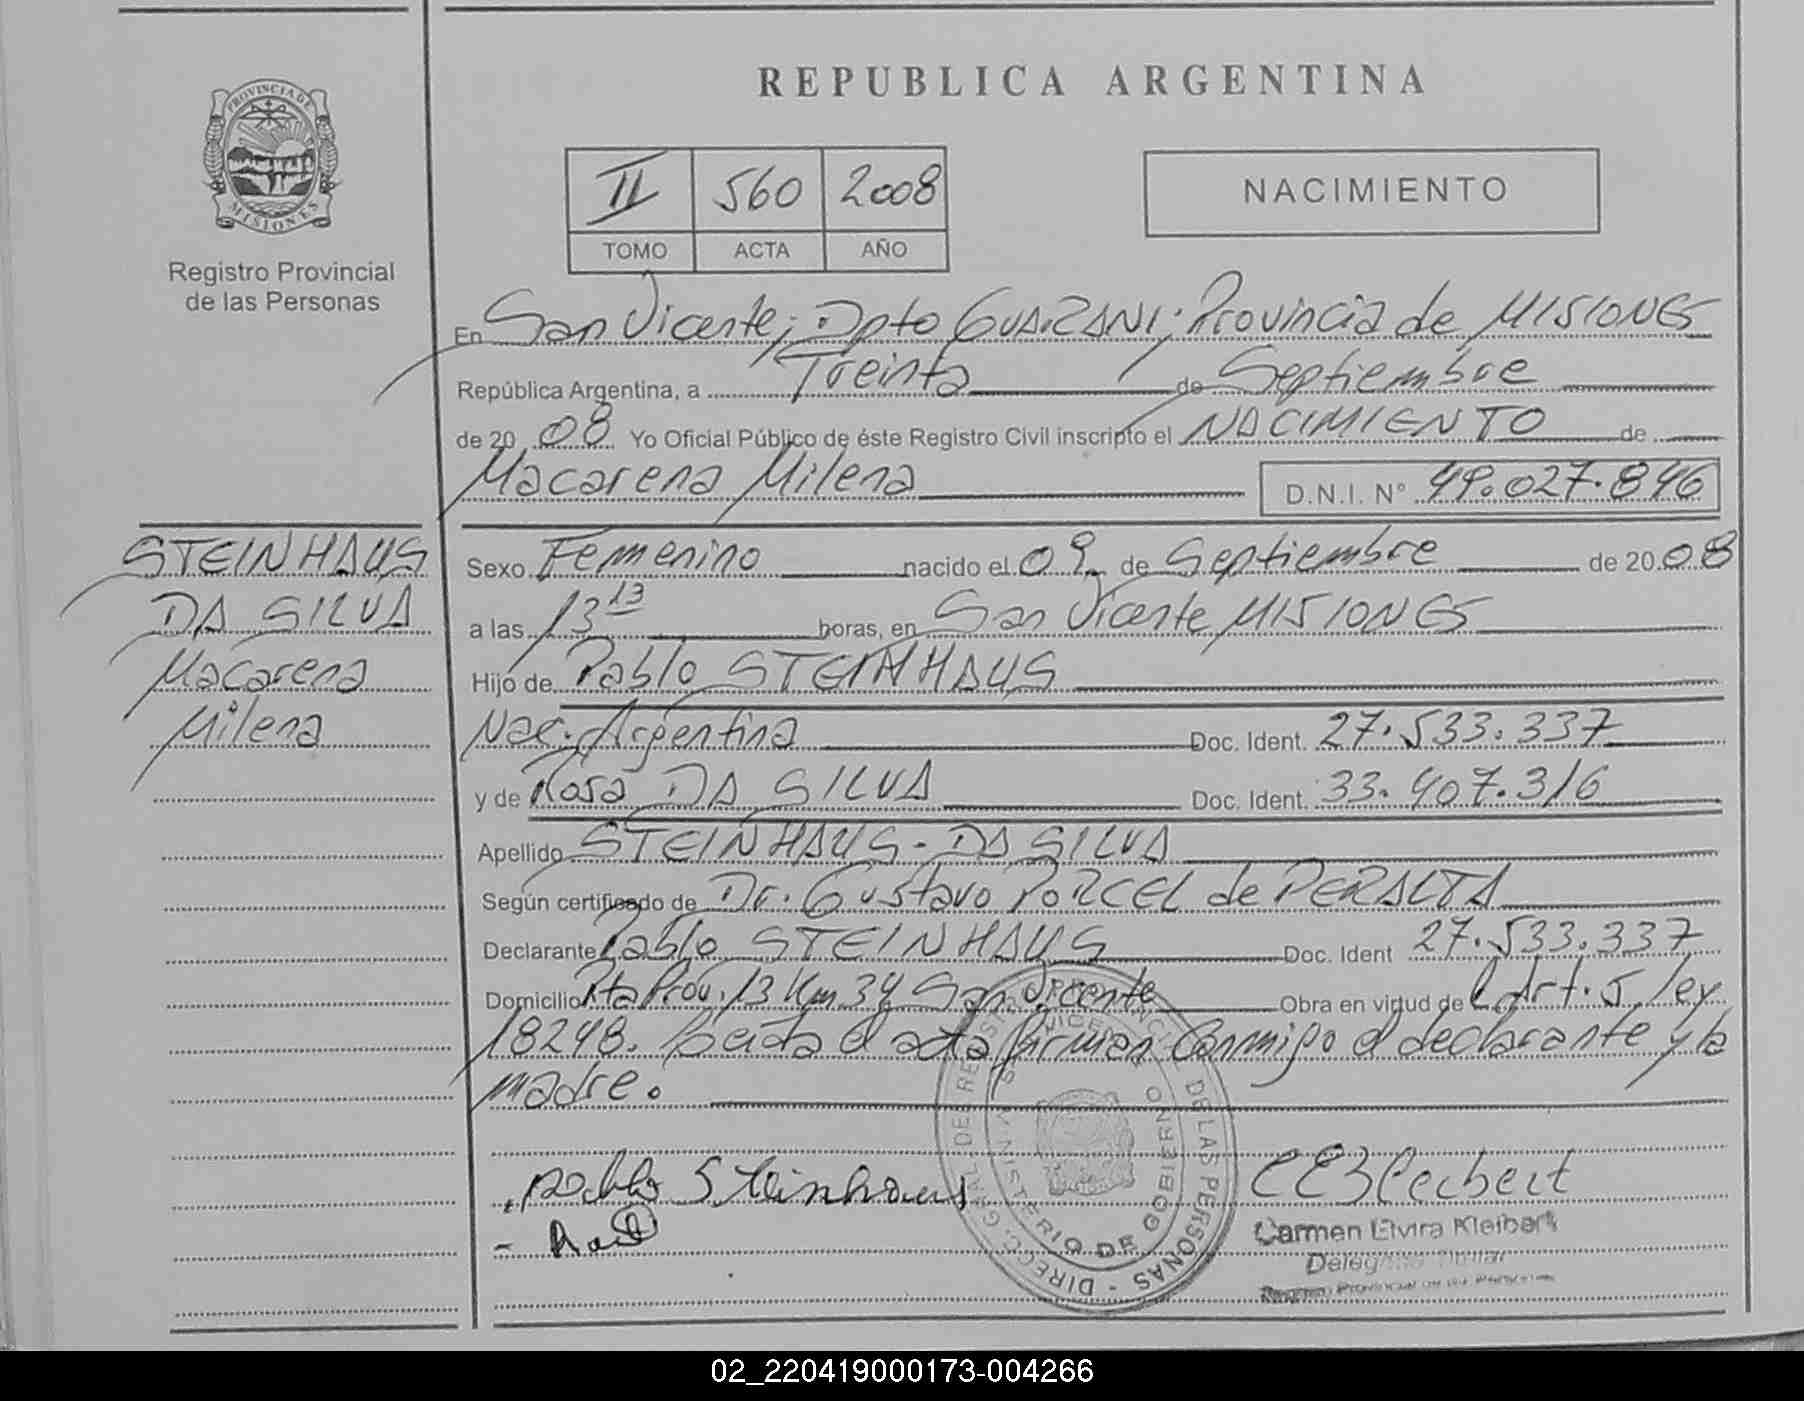 REPUBLICA ARGENTINA
PROVINCIA DE MISIONES
Registro Provincial
de las Personas
II 560 2008
TOMO ACTA AÑO
NACIMIENTO
En San Vicente; Dpto GUARANI; Provincia de MISIONES
República Argentina, a Treinta de Septiembre
de 20 08 Yo Oficial Público de éste Registro Civil inscripto el NACIMIENTO de
Macarena Milena D.N.I. Nº 49.027.846
STEINHAUS
DA SILVA
Macarena
Milena
Sexo Femenino nacido el 09 de Septiembre de 20 08
a las 13 13 horas, en San Vicente MISIONES
Hijo de Pablo STEINHAUS
Nac. Argentina Doc. Ident. 27.533.337
y de Rosa DA SILVA Doc. Ident. 33.407.316
Apellido STEINHAUS - DA SILVA
Según certificado de Dr. Gustavo PORCEL de PERALTA
Declarante Pablo STEINHAUS Doc. Ident 27.533.337
Domicilio Rta Prov. 13 Km 34 San Vicente Obra en virtud de l Art. 5 ley
18248. el acta firman Conmigo el declarante y la
madre.
pablo Steinhaus
Carmen Elvira Kleibert
Delegada Titular
Registro Provincial de las Personas
DIRECC. GRAL. DE REGISTRO PROVINCIAL DE LAS PERSONAS
MINISTERIO DE GOBIERNO
SAN VICENTE
02_220419000173-004266